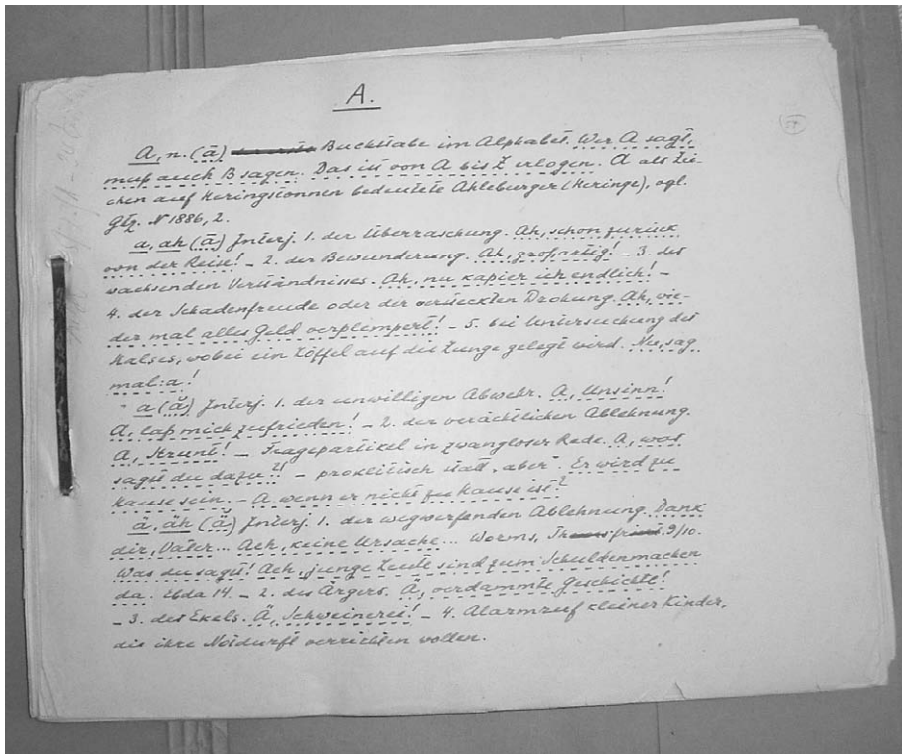 A.
A, n. (ā) Buchstabe im Alphabet. Wer A sagt,
muß auch B sagen. Das ist von A bis Z erlogen. A als Zei-
chen auf Heringstonnen bedeutete Ahleburger (Heringe), vgl.
Gtz. N 1886, 2.
a, ah (ā) Interj. 1. der Überraschung. Ah, schon zurück
von der Reise! – 2. der Bewunderung. Ah, großartig! – 3. des
wachsenden Verständnisses. Ah, nu kapier ich endlich! –
4. der Schadenfreude oder der versteckten Drohung. Ah, wie-
der mal alles Geld verplempert! – 5. bei Untersuchung des
Halses, wobei ein Löffel auf die Zunge gelegt wird. Nu, sag
mal: a!
a (ă) Interj. 1. der unwilligen Abwehr. A, Unsinn!
A, laß mich zufrieden! – 2. der verächtlichen Ablehnung.
A, Strunt! – Fragepartikel in zwangloser Rede. A, was
sagst du dazu?! – proklitisch statt „aber“. Er wird zu
Hause sein. – A wenn er nicht zu Hause ist?
ä, äh (ǟ) Interj. 1. der wegwerfenden Ablehnung. Dank
dir, Vater... Aeh, keine Ursache... Worms, 9/10.
Was du sagst! Aeh, junge Leute sind zum Schuldenmachen
da. Ebda 14. – 2. des Ärgers. Ä, verdammte Geschichte!
– 3. des Ekels. Ä, Schweinerei! – 4. Alarmruf kleiner Kinder,
die ihre Notdurft verrichten wollen.